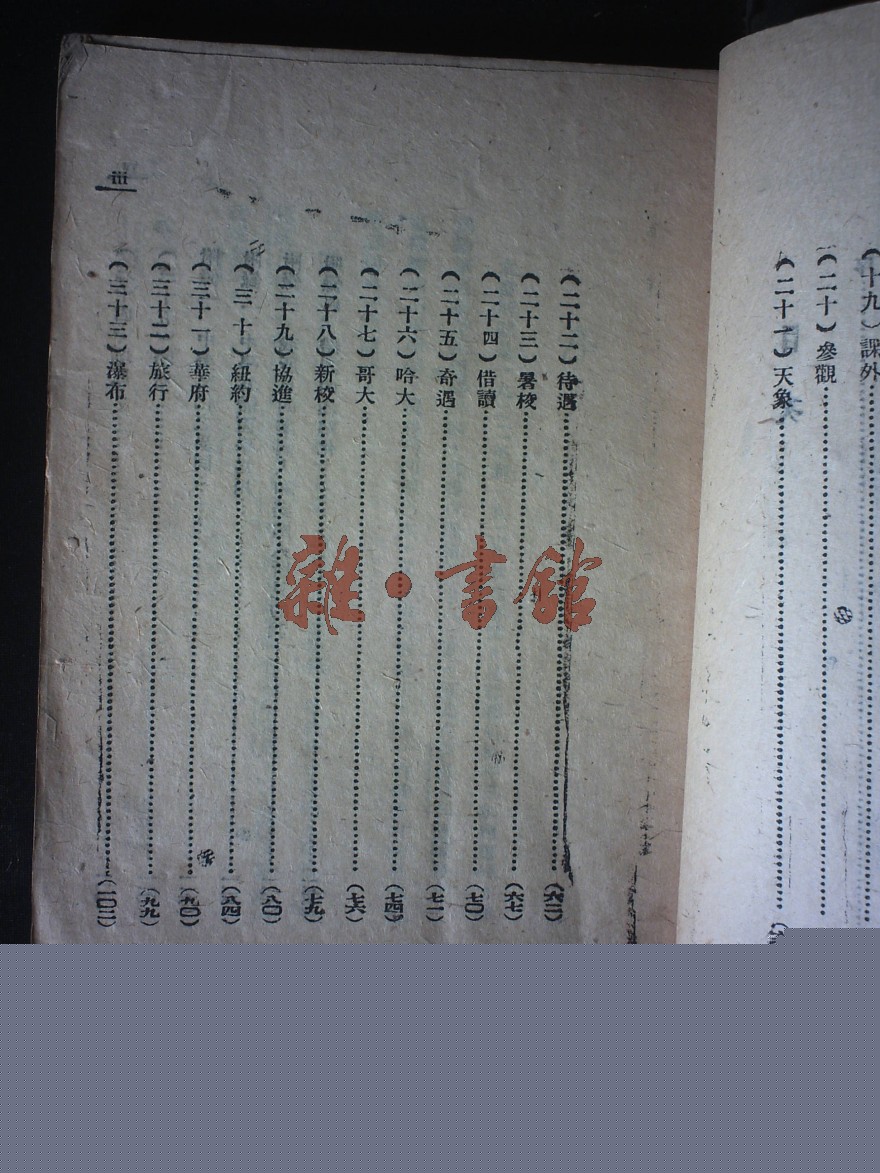 (十九)課外
(二十)參觀
(二十一)天象
iii
(二十二)待遇 (六二)
(二十三)暑校 (六七)
(二十四)借讀 (七〇)
(二十五)奇遇 (七一)
(二十六)哈大 (七四)
(二十七)哥大 (七六)
(二十八)新校 (七九)
(二十九)協進 (八〇)
(三十)紐約 (八四)
(三十一)華府 (九〇)
(三十二)旅行 (九九)
(三十三)瀑布 (一〇二)
雜·書館